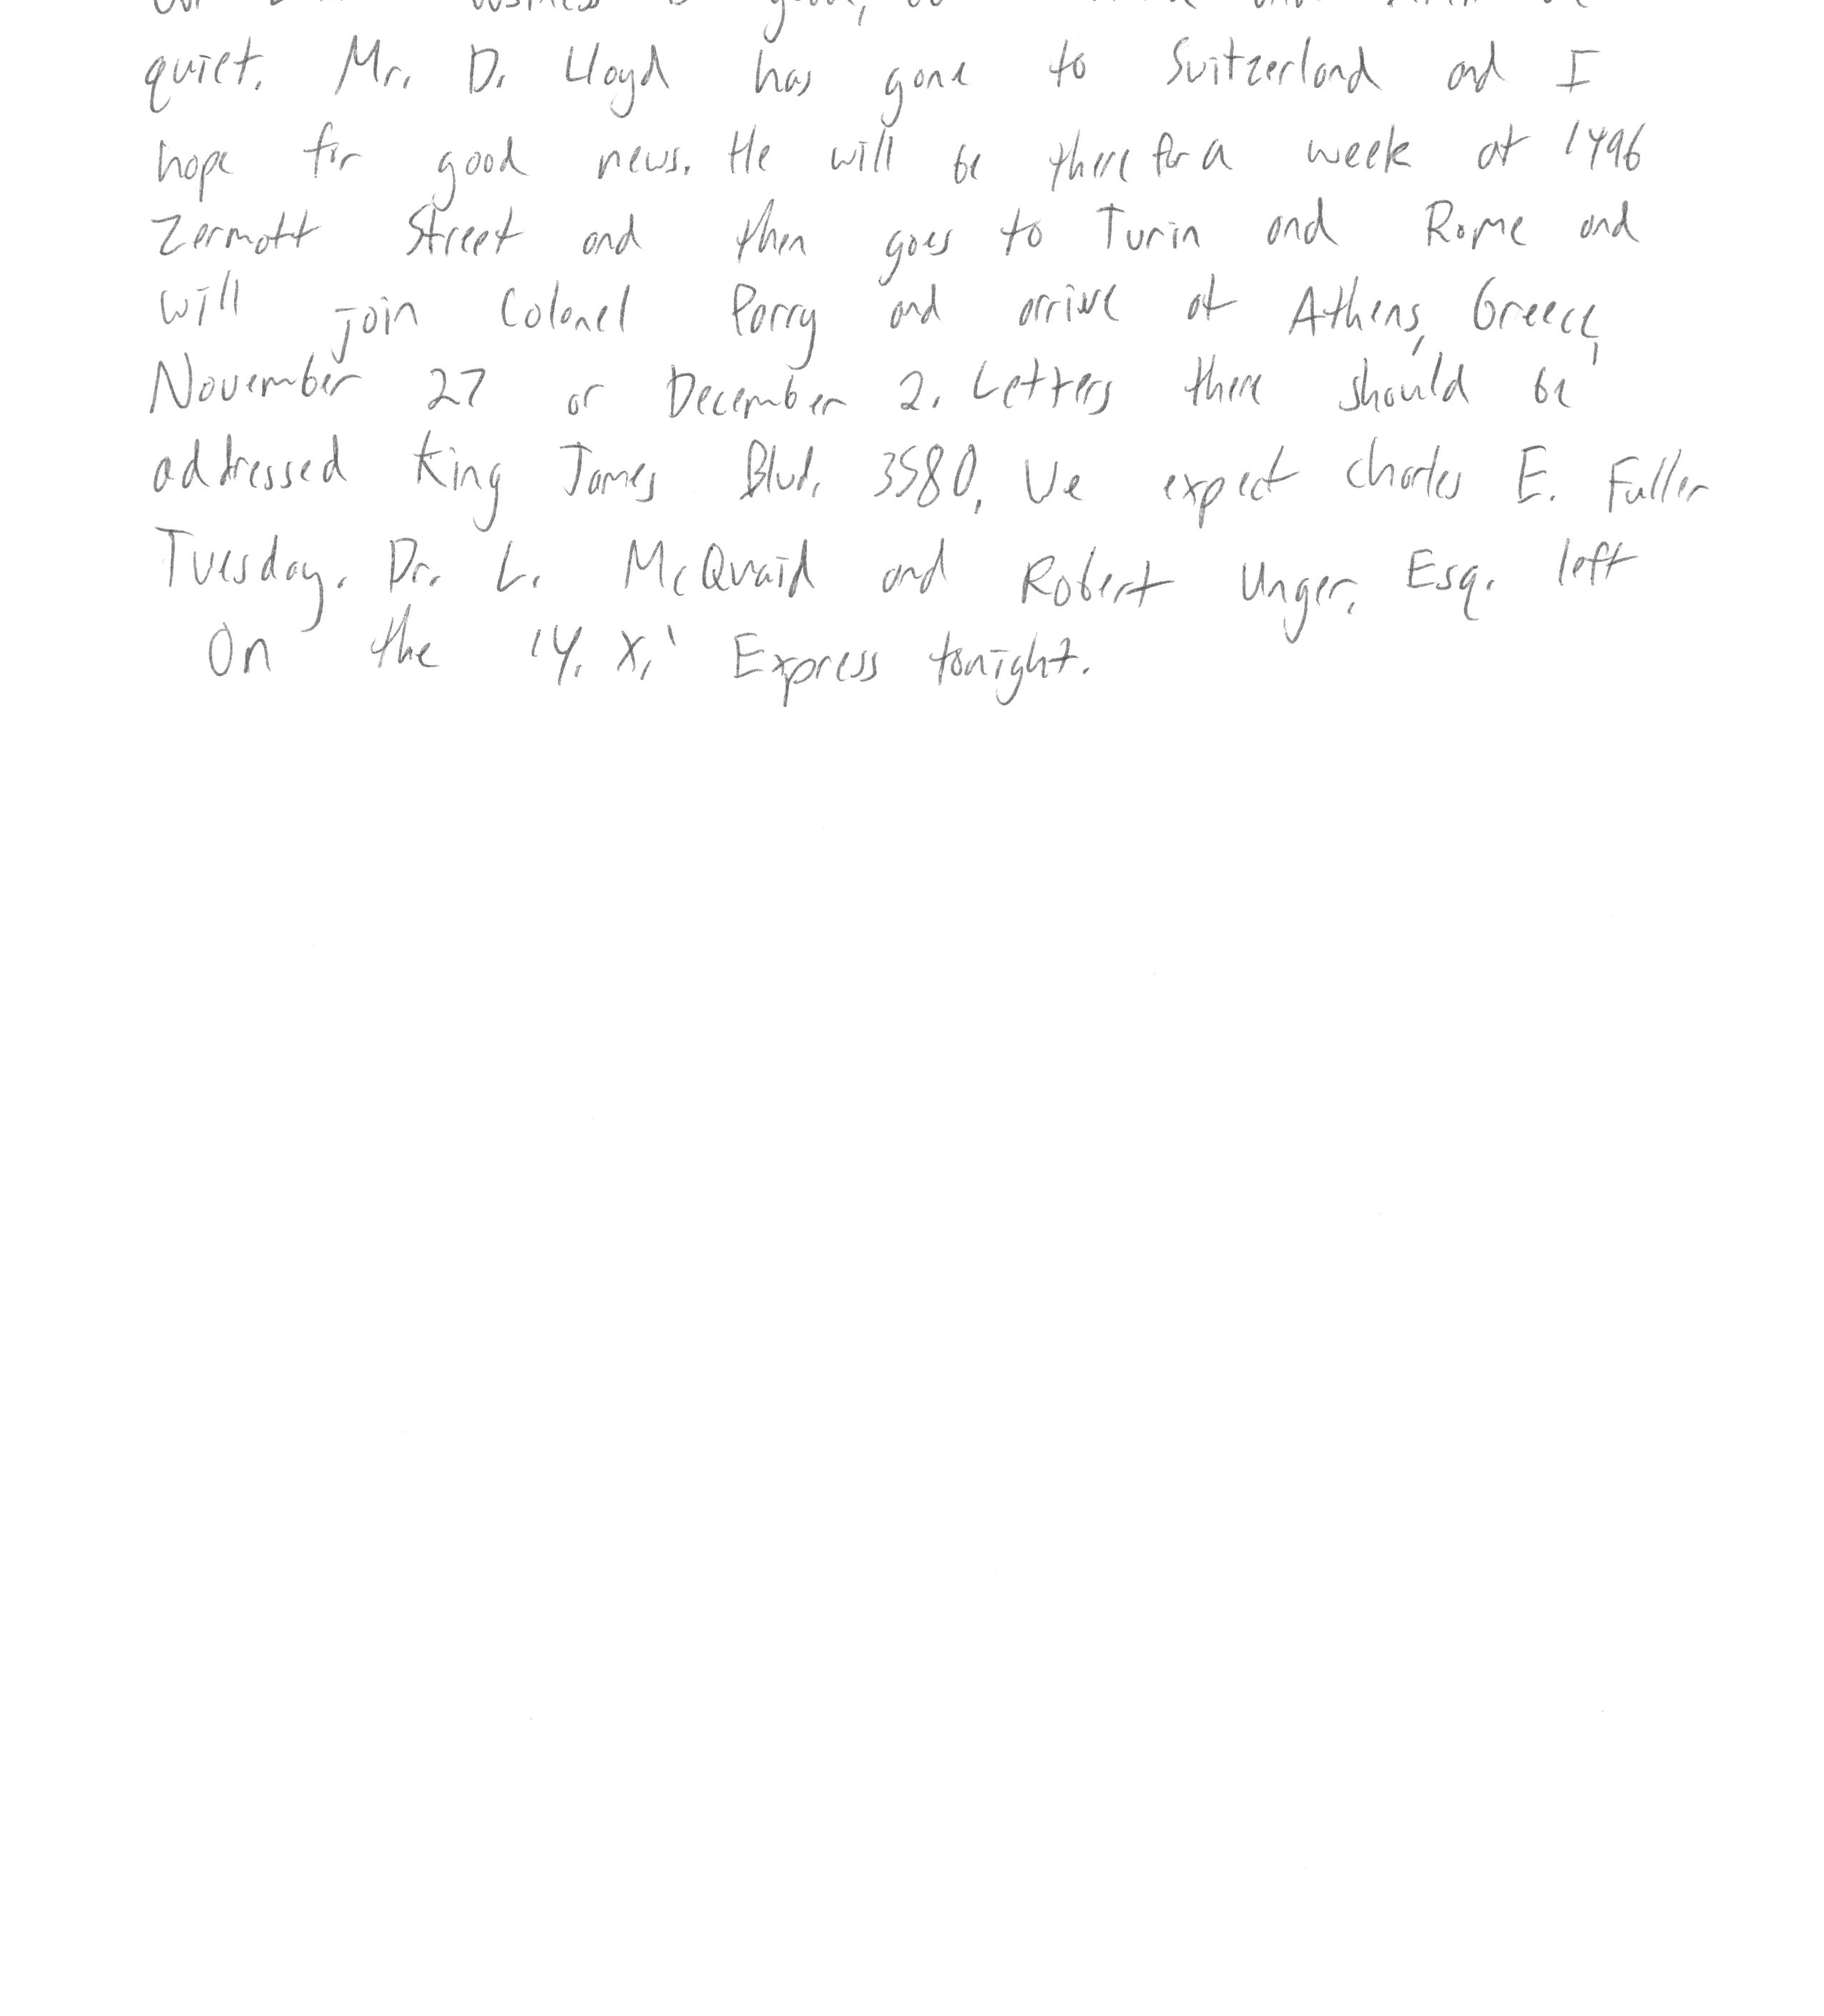 business is good,
quiet. Mr. D. Lloyd has gone to Switzerland and I
hope for good news. He will be there for a week at 1496
Zermott Street and then goes to Turin and Rome and
will join Colonel Parry and arrive at Athens, Greece,
November 27 or December 2. Letters there should be
addressed King James Blvd. 3580. We expect Charles E. Fuller
Tuesday. Dr. L. McQuaid and Robert Unger, Esq. left
on the 'Y. X.' Express tonight.